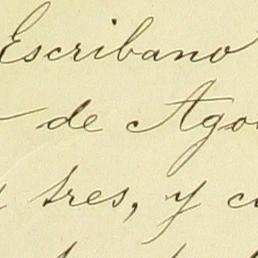 Escribano
de Ago
tres, y c